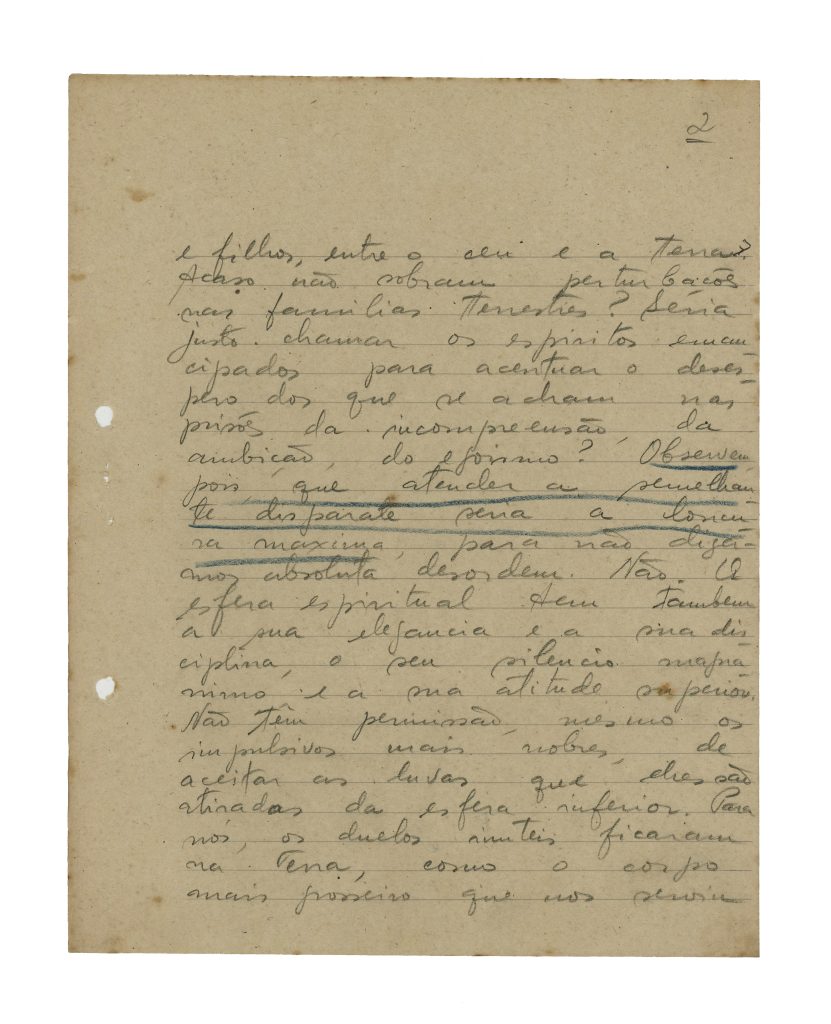 2
e filhos, entre o ceu e a Terra?
Acaso não sobram perturbacões
nas familias terrestres? Seria
justo chamar os espiritos eman
cipados para acentuar o deses-
pero dos que se acham nas
prisões da incompreensão, da
ambicão, do egoismo? Observem,
pois, que atender a semelhan-
te disparate seria a loucu-
ra maxima, para não digá-
mos absoluta desordem. Não. A
esfera espiritual tem tambem
a sua elegancia e a sua dis
ciplina, o seu silencio magnâ
nimo e a sua atitude superior.
Não têm permissão, mesmo os
impulsivos mais nobres, de
aceitar as luvas que lhes são
atiradas da esfera inferior. Para
nós, os duelos inuteis ficaram
na Terra, como o corpo
mais grosseiro que nos serviu